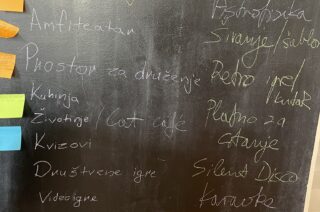 Amfiteatar
Prostor za druženje
Kuhinja
Životinje / Cat café
Kvizovi
Društvene igre
Videoigre
Astrofizika
Šivanje/šablo
Retro
Platno za
crtanje
Silent Disco
Karaoke